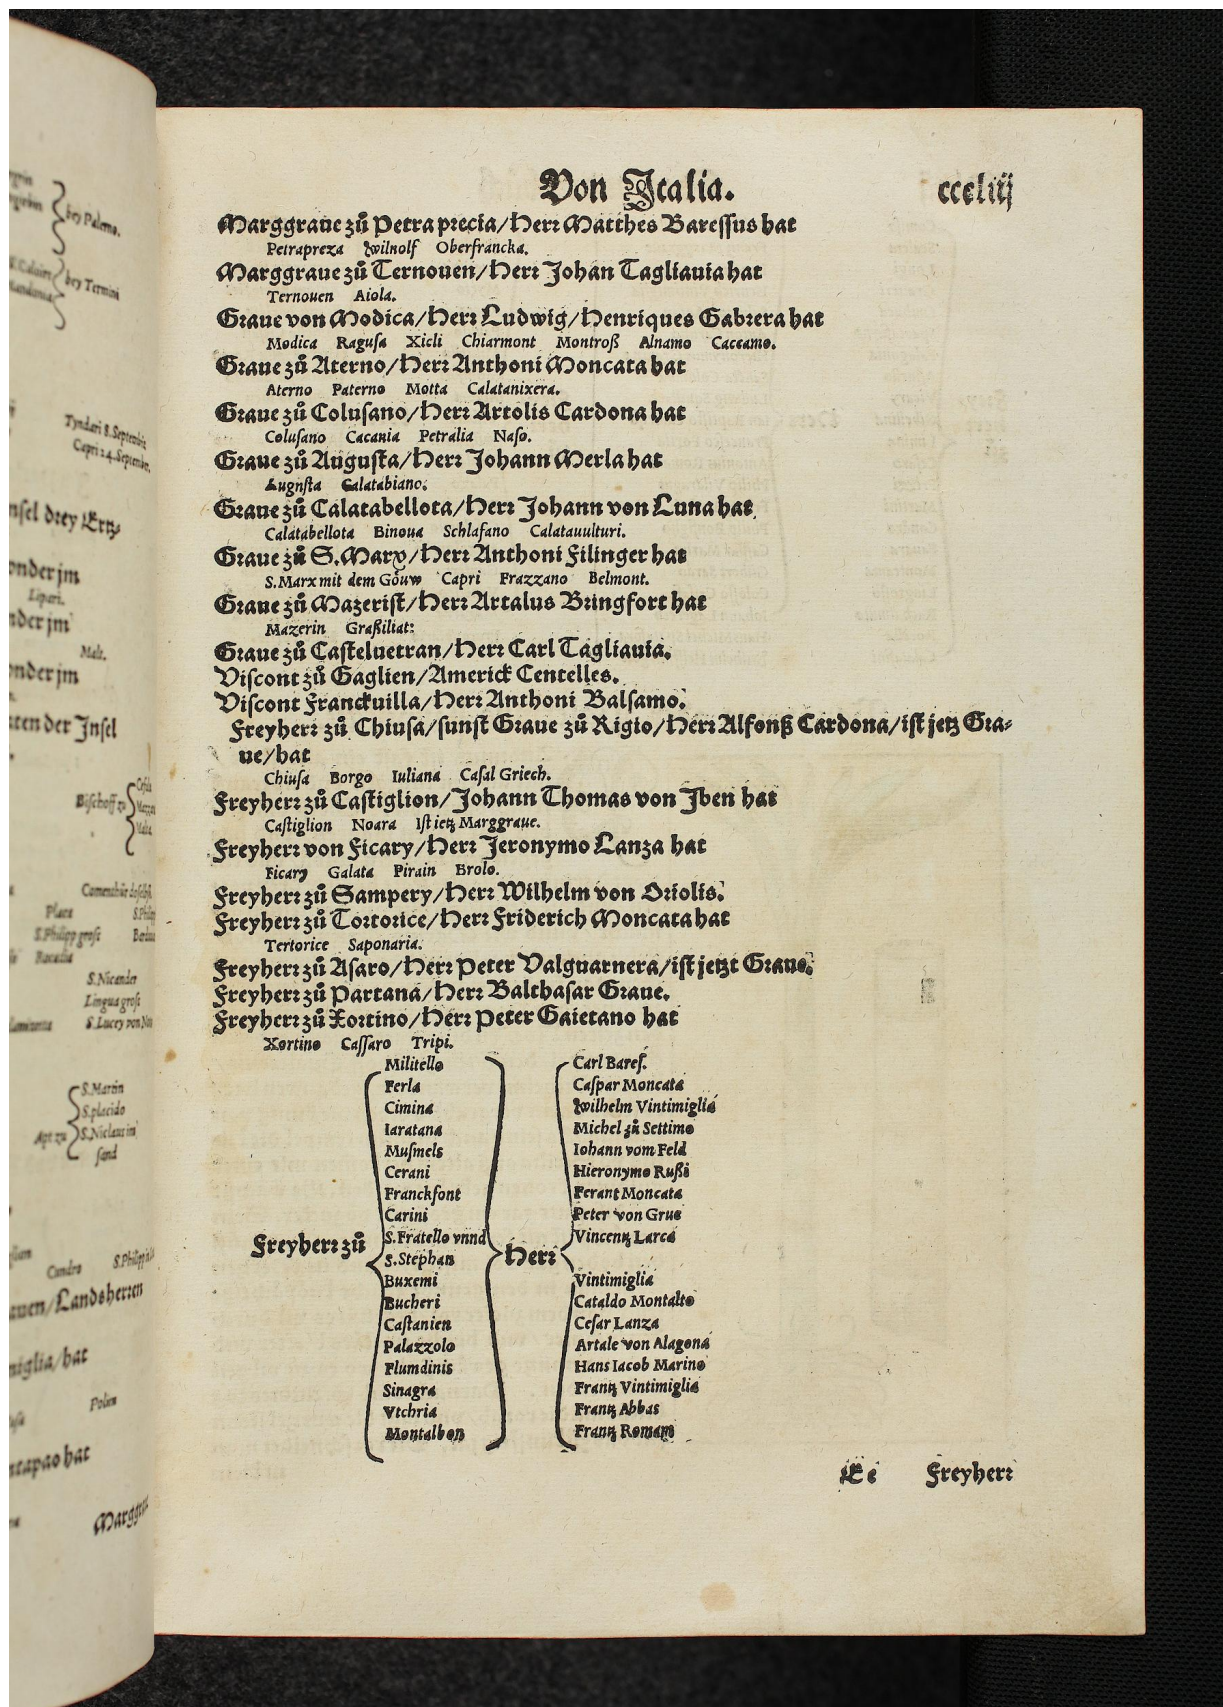 Von Italia.
cccliiij
Marggraue zů Petra precia/Herr Matthes Baressus hat
Petrapreza Wilnolf Oberfrancka.
Marggraue zů Ternouen/Herr Johan Tagliauia hat
Ternouen Aiola.
Graue von Modica/Herr Ludwig/Henriques Gabrera hat
Modica Ragusa Xicli Chiarmont Montroß Alnamo Caccamo.
Graue zů Aterno/Herr Anthoni Moncata hat
Aterno Paterno Motta Calatanixera.
Graue zů Colusano/Herr Artolis Cardona hat
Colusano Cacania Petralia Naso.
Graue zů Augusta/Herr Johann Merla hat
Augnsta Calatabiano.
Graue zů Calatabellota/Herr Johann von Luna hat
Calatabellota Binoua Schlafano Calatauulturi.
Graue zů S. Marx/Herr Anthoni Filinger hat
S. Marx mit dem Göuw Capri Frazzano Belmont.
Graue zů Mazerist/Herr Artalus Bringfort hat
Mazerin Graßiliat:
Graue zů Casteluetran/Herr Carl Tagliauia.
Viscont zů Gaglien/Americk Centelles.
Viscont Franckuilla/Herr Anthoni Balsamo.
Freyherr zů Chiusa/sunst Graue zů Rigio/Herr Alfonß Cardona/ist jetz Gra-
ue/hat
Chiusa Borgo Iuliana Casal Griech.
Freyherr zů Castiglion/Johann Thomas von Iben hat
Castiglion Noara Ist ietz Marggraue.
Freyherr von Ficary/Herr Jeronymo Lanza hat
Ficary Galata Pirain Brolo.
Freyherr zů Sampery/Herr Wilhelm von Oriolis.
Freyherr zů Tortorice/Herr Friderich Moncata hat
Tertorice Saponaria.
Freyherr zů Asaro/Herr Peter Valguarnera/ist jetzt Graue.
Freyherr zů Partana/Herr Balthasar Graue.
Freyherr zů Xortino/Herr Peter Gaietano hat
Xortino Cassaro Tripi.
Freyherr zů
Militello
Ferla
Cimina
Iaratana
Musmels
Cerani
Franckfont
Carini
S. Fratello vnnd
S. Stephan
Buxemi
Bucheri
Castanien
Palazzolo
Flumdinis
Sinagra
Vtchria
Montalbon
Herr
Carl Bares.
Caspar Moncata
Wilhelm Vintimiglia
Michel zů Settimo
Iohann vom Feld
Hieronymo Rußi
Ferant Moncata
Peter von Grue
Vincentz Larca
Vintimiglia
Cataldo Montalto
Cesar Lanza
Artale von Alagona
Hans Iacob Marino
Frantz Vintimiglia
Frantz Abbas
Frantz Romam
Ee Freyherr